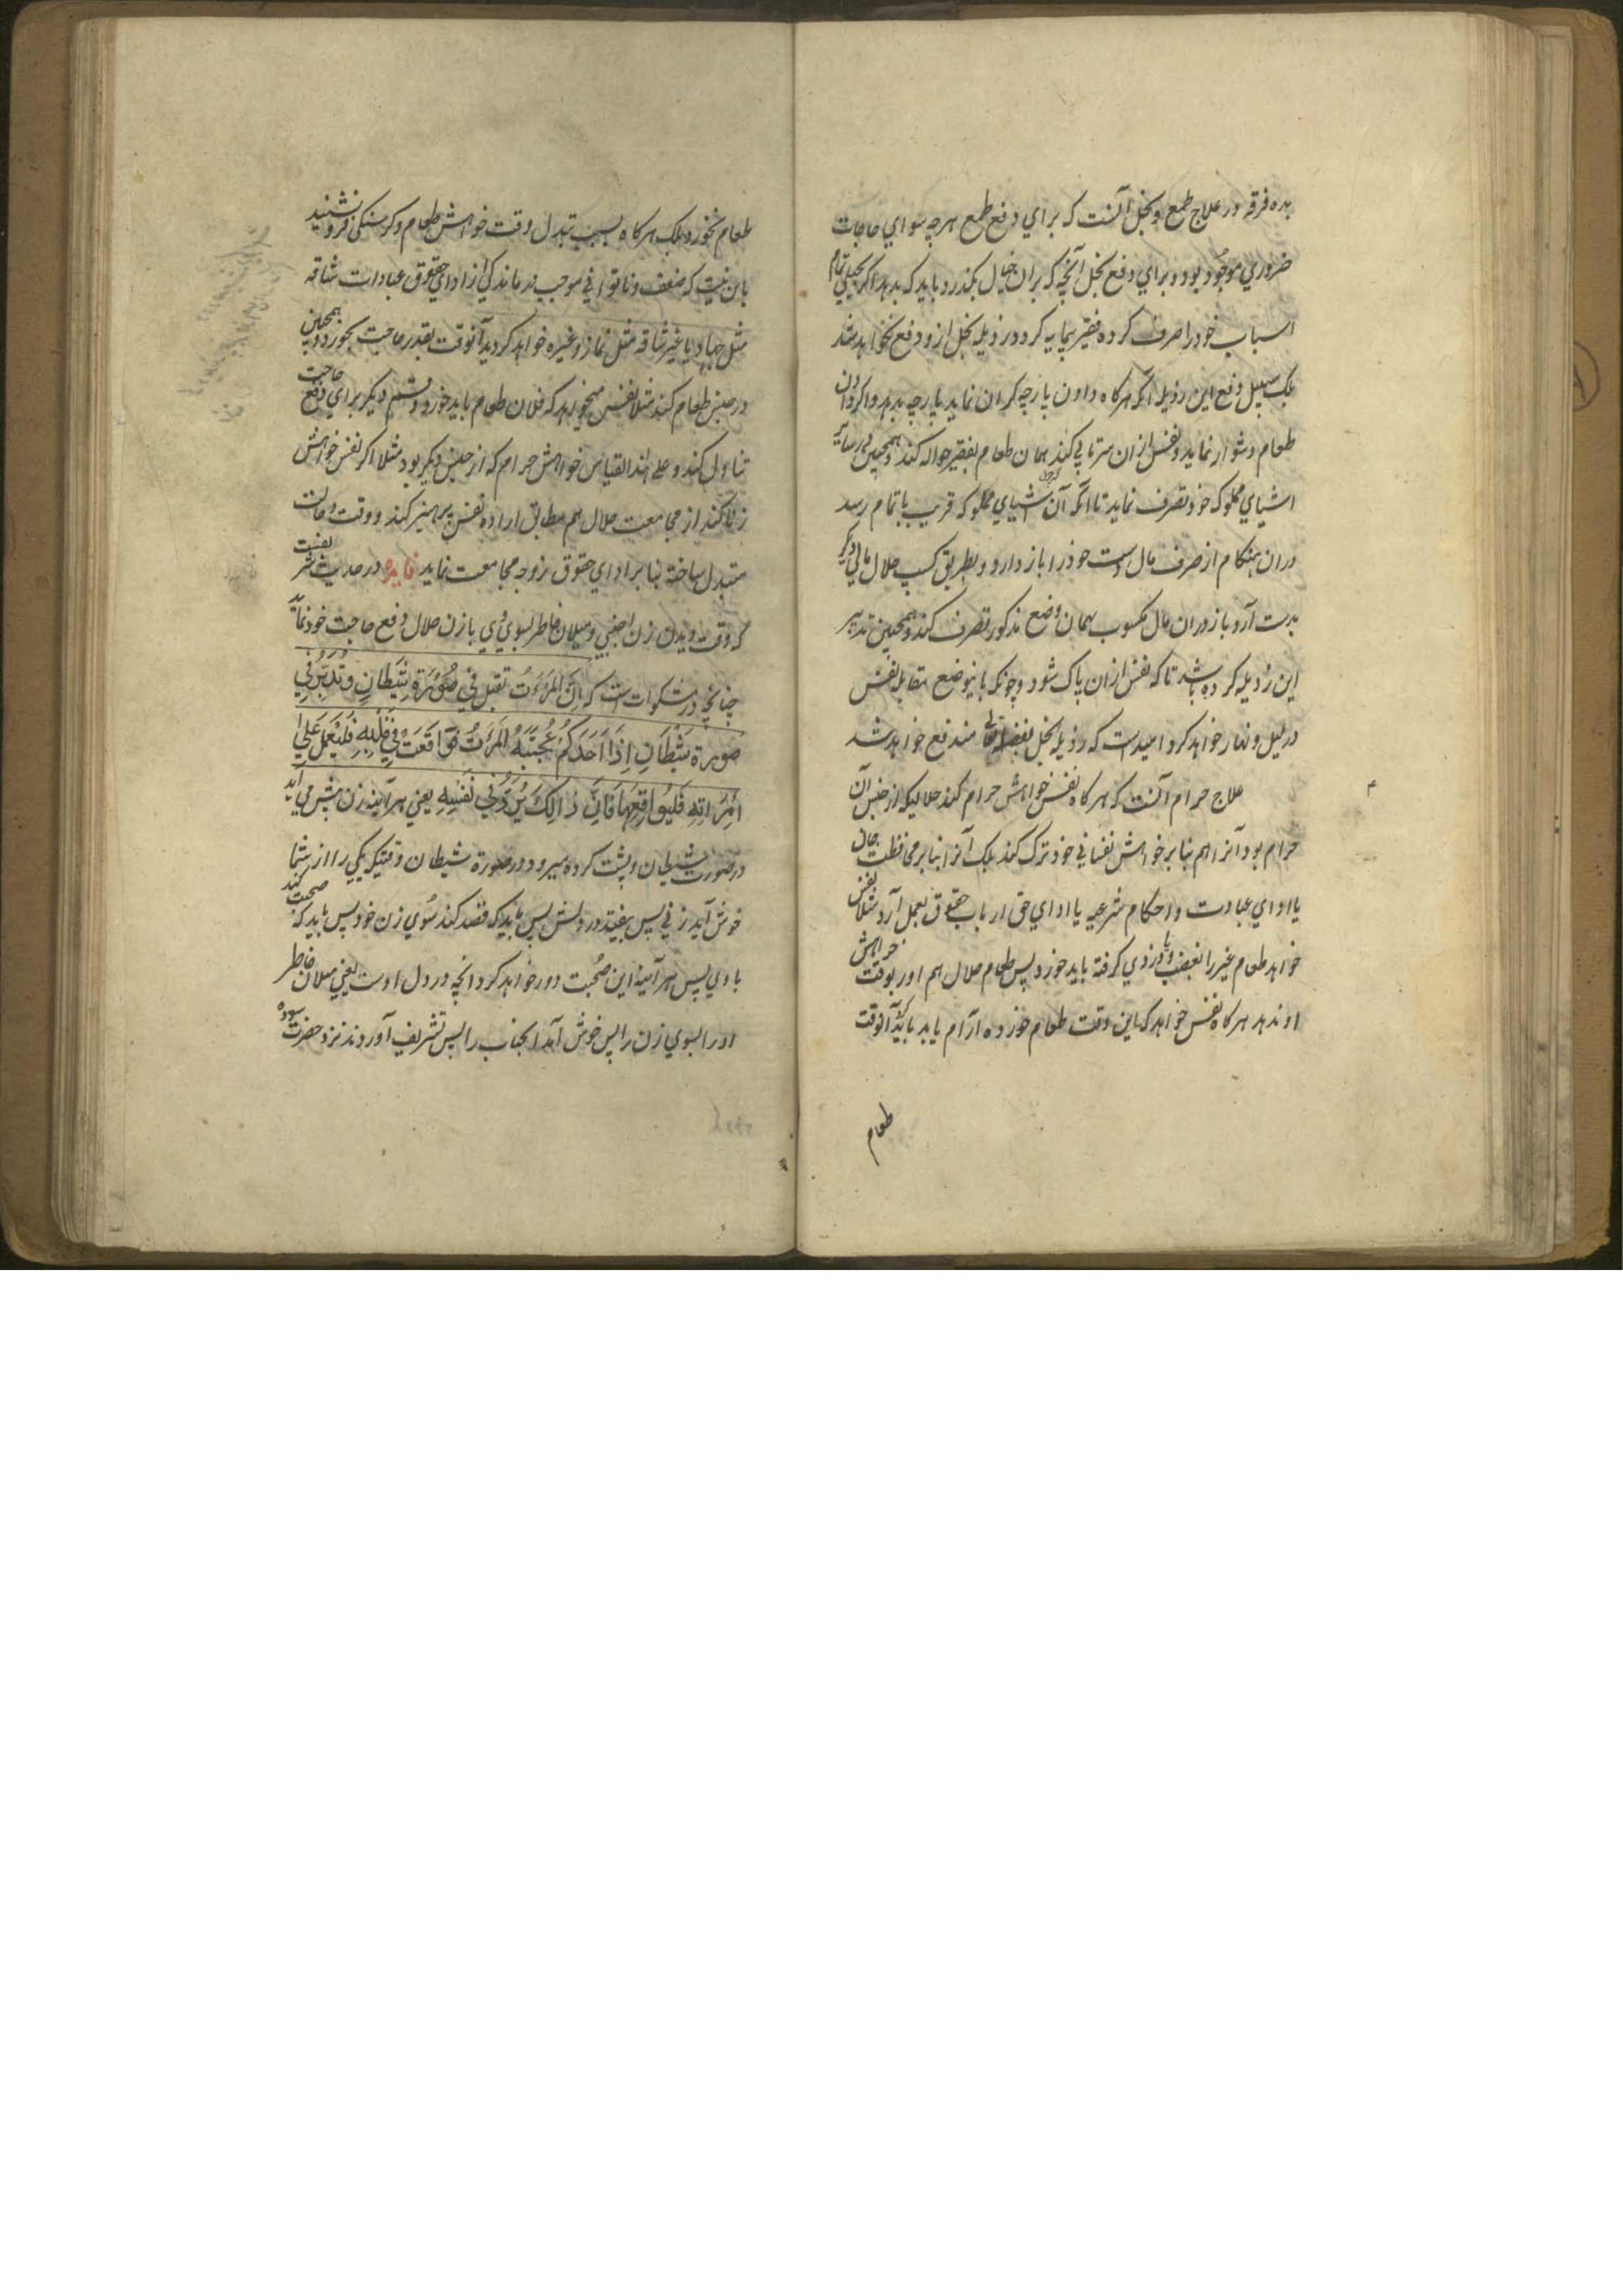 بدہ فرقہ در علاج طمع و بخل آنست کہ براي دفع طمع هرچہ سواي حاجات
ضروري موجود بود و براي دفع بخل آنچہ کہ بران خیال بکذرد باید کہ بدہد اکر بخیلي تمام
اسباب خود را صرف کردہ فقیر بیمایہ کردد رذیلہ بخل ازو دفع نخواهد شد
بلکہ سبیل دفع این رذیلہ آنکہ هرکاہ دادن پارچہ کران نماید پارچہ بدہد و اکر دادن
طعام دشوار نماید و نفس ازان سرتابي کند همان طعام بفقیر حوالہ کند و همچنین در سایر
اشیاي مملوکہ خود تصرف نماید تا آنکہ آن اشیاي مملوکہ قریب باتمام رسد
دران هنکام از صرف مال دست خود را باز دارد و بطریق کسب حلال مالي دیکر
بدست آرد باز دران مال مکسوب بهمان وضع مذکور تصرف کند و همچنین تدبیر
این رذیلہ کردہ باشد تا کہ نفس ازان پاک شود و چونکہ باینوضع مقابلہ نفس
در لیل و نهار خواهد کرد امیدست کہ رذیلہ بخل بفضل الهي مندفع خواهد شد
علاج حرام آنست کہ هرکاہ نفس خواهش حرام کند حلالیکہ از جنس آن
حرام بود آنرا هم بنابر خواهش نفساني خود ترک کند بلکہ آنرا بنابر محافظت جان
یا اداي عبادت و احکام شرعیہ یا اداي حق ارباب حقوق بعمل آرد مثلا نفس
خواهد طعام غیر را بغصب و یا دزدي کرفتہ باید خورد پس طعام حلال هم اورا بوقت خواهش
او ندهد هرکاہ نفس خواهد کہ این وقت طعام خوردہ آرام یابد باید کہ آنوقت
طعام
طعام نخورد بلکہ هرکاہ بسبب تبدل وقت خواهش طعام و کرسنکي فرو نشیند
باین نیت کہ ضعف و ناتواني موجب درماندکي از اداي حقوق عبادات شاقہ
مثل جهاد یا غیر شاقہ مثل نماز و غیرہ خواهد کردید آنوقت بقدر حاجت بخورد و همچنین
در جنس طعام کند مثلا نفس میخواهد کہ فلان طعام باید خورد و قسم دیکر براي دفع حاجت
تناول کند و علي هذا القیاس خواهش حرام کہ از جنس دیکر بود مثلا اکر نفس خواهش
زنا کند از مجامعت حلال هم مطابق ارادہ نفس پرهیز کند و وقت و حالت
متبدل ساختہ بنابر اداي حقوق زوجہ مجامعت نماید فایدہ در حدیث شریفست
کہ وقت دیدن زن اجنبي و میلان خاطر بسوي وي با زن حلال دفع حاجت خود نماید
چنانچہ در مشکوات است کہ اِنَّ المَرءَتُ تقبل في صُوْرَة شَیْطَانٍ وَتُدبِرُ في
صورة شَیْطَانِ اِذَا اَحَدَکُمْ عُجبَتْهُ المَرءَتُ فَوَاقَعَتْ فِي قَلْبِهِ فَلْیَعْمِلْ عَلي
اِمْرَاتِهِ فَلْیُوَاقِعْهَا فَاِنَّ ذَالِکَ یَرُدُّ فِي نَفْسِهِ یعني هرآئینہ زن پیش مي آید
در صورت شیطان و پشت کردہ میرود در صورة شیطان وقتیکہ یکي را از شما
خوش آید زني پس بیفتد در دلش پس باید کہ قصد کند سوي زن خود پس باید کہ صحبت کند
با وي پس هرآئینہ این صحبت دور خواهد کرد آنچہ در دل اوست یعني میلان خاطر
او را بسوي زن را پس خوش آمد آنجناب را پس تشریف آوردند نزد حضرت سودہ